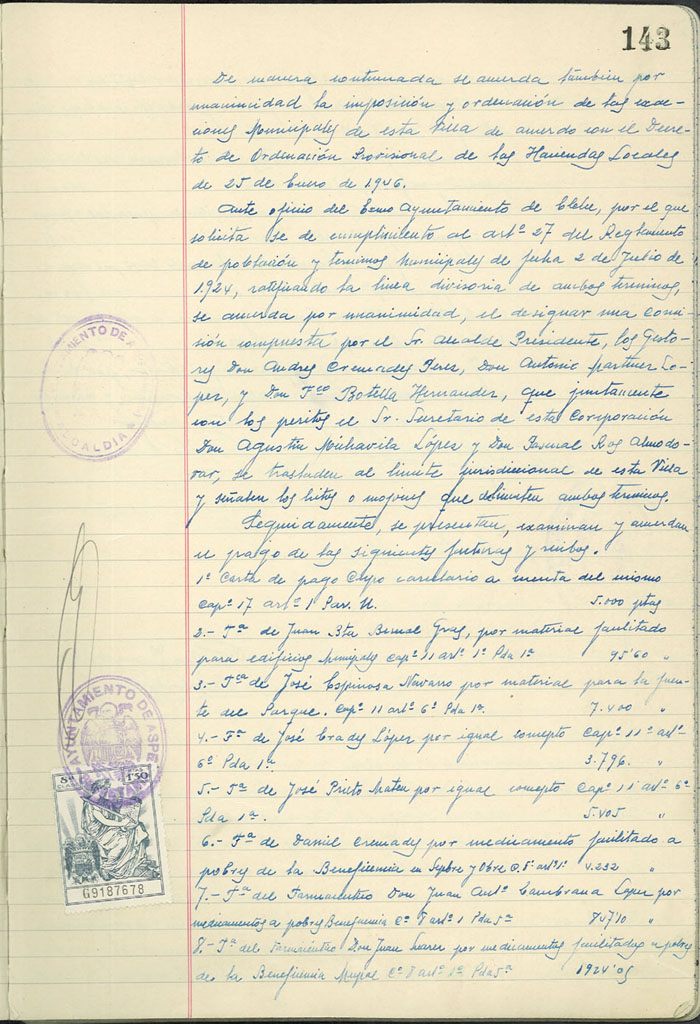 143
De manera continuada se acuerda tambien por
unanimidad la imposición y ordenación de las exac-
ciones Municipales de esta Villa de acuerdo con el Decre-
to de Ordenación Provisional de las Haciendas Locales
de 25 de Enero de 1946.
Ante oficio del Exmo Ayuntamiento de Elche, por el que
solicita se de cumplimiento al artº 27 del Reglamento
de población y terminos Municipales de fecha 2 de Julio de
1.924, ratificando la linea divisoria de ambos terminos,
se acuerda por unanimidad, el designar una Comi-
sión compuesta por el Sr. Alcalde Presidente, los Gesto-
res Don Andres Cremades Perez, Don Antonio Martinez Lo-
pez, y Don Fco Botella Hernandez, que juntamente
con los peritos el Sr. Secretario de esta Corporación
Don Agustín Michavila López y Don Pascual Ros Almodo-
var, se trasladen al limite jurisdiccional de esta Villa
y señalen los hitos o mojones que delimiten ambos terminos.
Seguidamente, se presentan, examinan y acuerdan
el pago de las siguientes facturas y recibos.
1º Carta de pago Cupo carcelario a cuenta del mismo
Capº 17 artº 1 Parr. U. 5.000 ptas
2.- Fª de Juan Bta Bernal Gras, por material facilitado
para edificios Munipales Capº 11 artº 1º Pda 1ª 95'60 "
3.- Fª de José Espinosa Navarro por material para la fuen-
te del Parque. Capº 11 artº 6º Pda 1ª. 7.400 "
4.- Fª de José López por igual concepto Capº 11º artº
6º Pda 1ª. 3.796. "
5.- Fª de José Prieto Mateu por igual concepto Capº 11 artº 6º
Pda 1ª. 5.405 "
6.- Fª de Daniel Cremades por medicamento facilitado a
pobres de la Beneficencia en Sepbre y Obre C. 8º artº 1º 4.232 "
7.- Fª del Farmaceutico Don Juan Antº Cambrana Lopez por
medicamentos a pobres Beneficencia Cº 8 artº 1 Pda 5ª "
8.- Fª del Farmaceutico Don Juan por medicamentos facilitados a pobres
de la Beneficencia Mupal Cº 8 artº 1º Pda 5ª 1924'05
AYUNTAMIENTO DE ASPE
ALCALDIA
AYUNTAMIENTO DE ASPE
8ª 1'50
G9187678